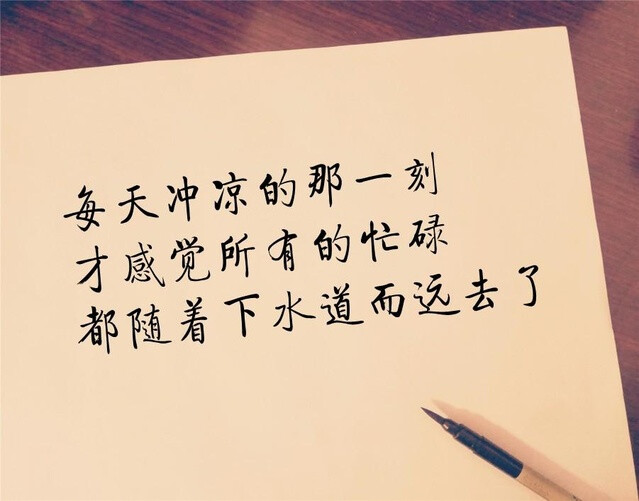 每天冲凉的那一刻
才感觉所有的忙碌
都随着下水道而远去了